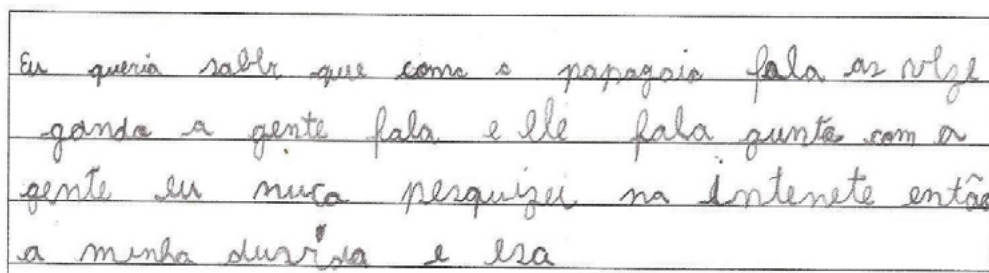 Eu queria saber que como o papagaio fala as veze
gando a gente fala e ele fala gunto com a
gente eu nuca pesquizei na intenete então
a minha duvida e esa